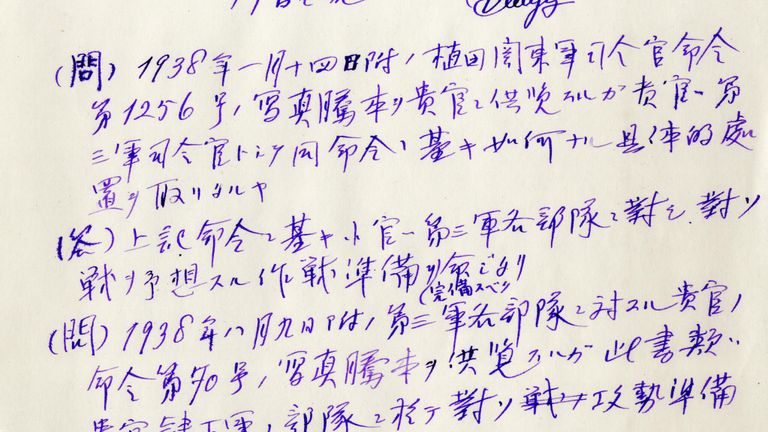 (問) 1938年一月十四日附ノ植田関東軍司令官命令
第1256号ノ写真謄本ヲ貴官ニ供覧スルガ貴官ハ第
三軍司令官トシテ同命令ニ基キ如何ナル具体的處
置ヲ取リタルヤ
(答) 上記命令ニ基キ小官ハ第三軍各部隊ニ對シ對ソ
戦ヲ予想スル作戦準備ヲ命ジタリ
(完備スベク
(問) 1938年八月九日附ノ第三軍各部隊ニ対スル貴官ノ
命令第90号ノ写真謄本ヲ供覧スルガ此書類ハ
貴官隷下軍ノ部隊ニ於テ對ソ戦攻勢準備